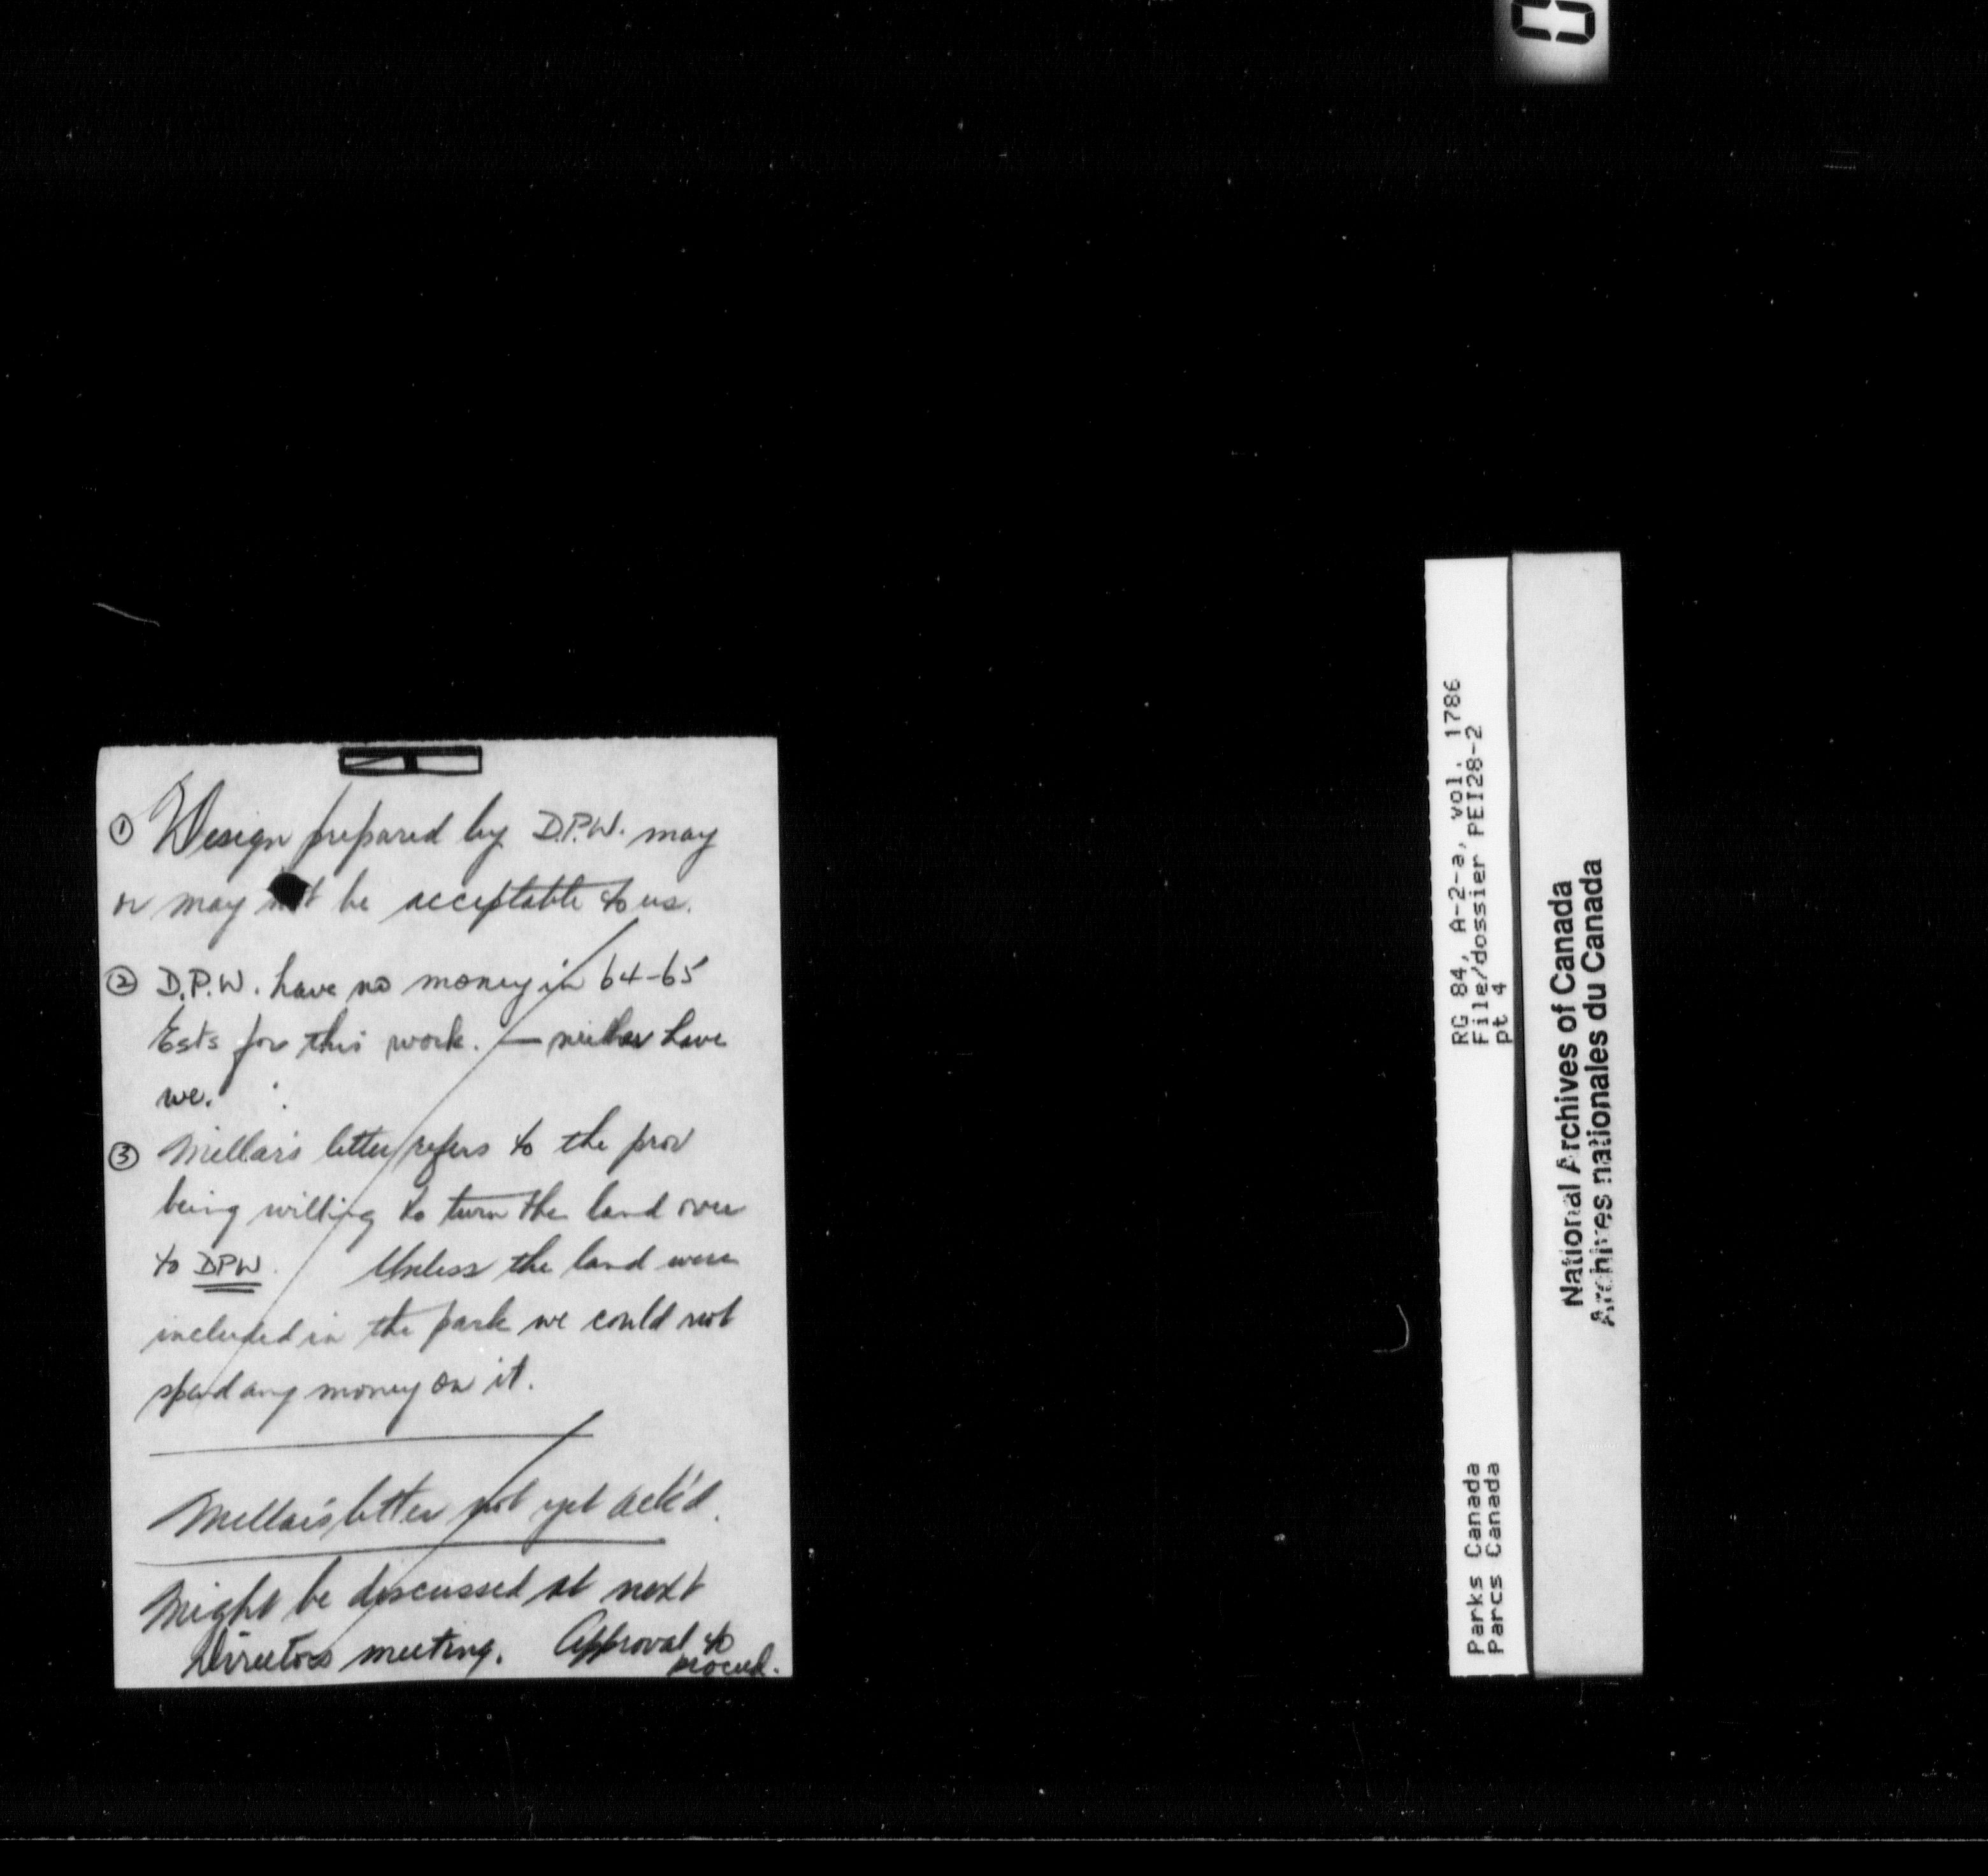 ① Design prepared by D.P.W. may
or may not be acceptable to us.
② D.P.W. have no money in 64-65
Ests for this work. — neither have
we.
③ Mellar's letter refers to the prov
being willing to turn the land over
to DPW. Unless the land were
included in the park we could not
spend any money on it.
Mellar's letter not yet ack'd.
Might be discussed at next
Directors meeting. Approval to
proceed.
RG 84, A-2-a, vol. 1786
File/dossier PEI28-2
pt 4
Parks Canada
Parcs Canada
National Archives of Canada
Archives nationales du Canada